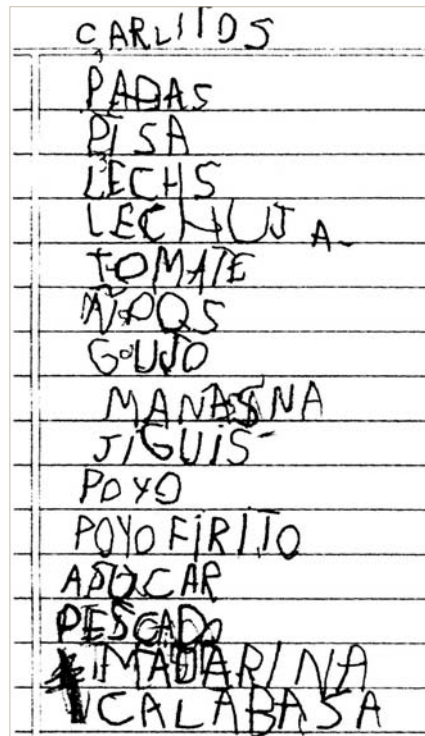 CARLITOS
PADAS
PISA
LECHS
LECHUJA
TOMATE
ÑOQS
GOUJO
MANASNA
JIGUIS
POYO
POYO FIRITO
ASUCAR
PESCADO
MADARINA
CALABASA